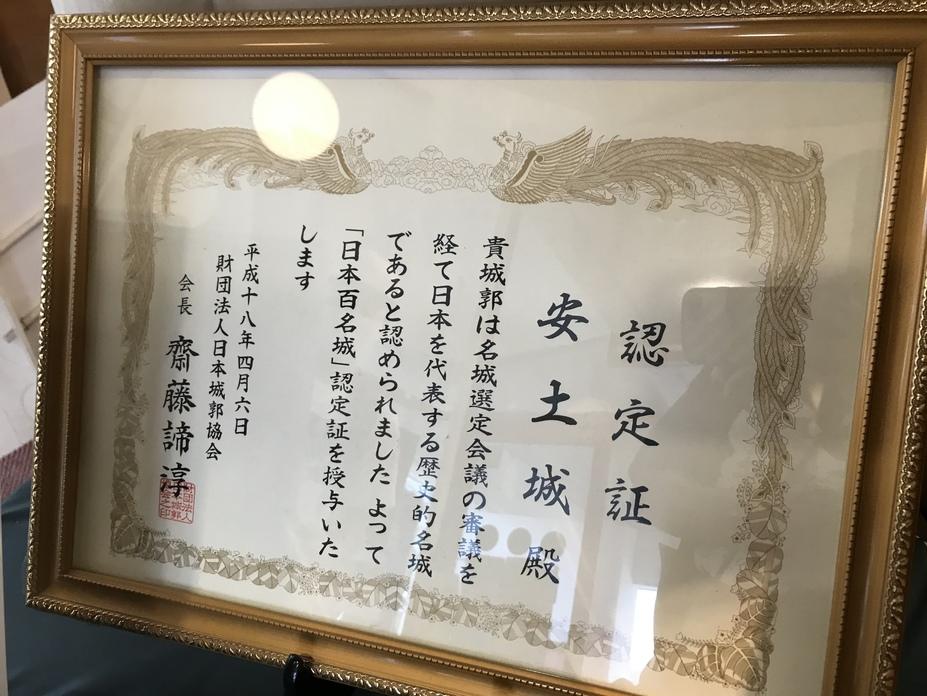 認定証
安土城殿
貴城郭は名城選定会議の審議を
経て日本を代表する歴史的名城
であると認められました よって
「日本百名城」認定証を授与いた
します
平成十八年四月六日
財団法人日本城郭協会
会長 齋藤諦淳